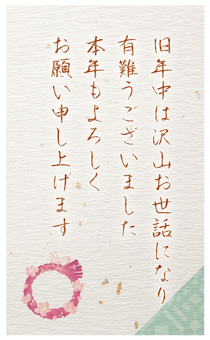 旧年中は沢山お世話になり
有難うございました
本年もよろしく
お願い申し上げます